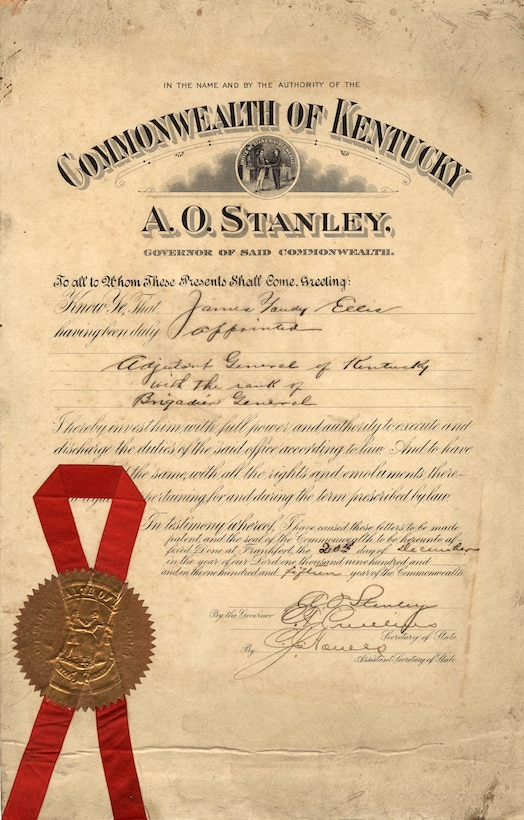 IN THE NAME AND BY THE AUTHORITY OF THE
COMMONWEALTH OF KENTUCKY
A. O. STANLEY,
GOVERNOR OF SAID COMMONWEALTH.
To all to Whom These Presents Shall Come, Greeting:
Know Ye, That James Tandy Ellis
having been duly appointed
Adjutant General of Kentucky
with the rank of
Brigadier General
I hereby invest him with full power and authority to execute and
discharge the duties of the said office according to law. And to have
the same, with all the rights and emoluments there-
pertaining, for and during the term prescribed by law.
In testimony whereof, I have caused these letters to be made
patent, and the seal of the Commonwealth to be hereunto af-
fixed. Done at Frankfort, the 20th day of December
in the year of our Lord one thousand nine hundred and
and in the one hundred and fifteen year of the Commonwealth
A O Stanley
By the Governor
Secretary of State
By
Assistant Secretary of State